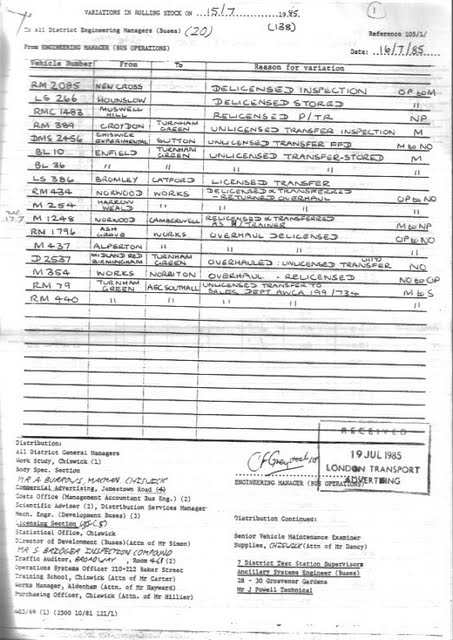 VARIATIONS IN ROLLING STOCK ON 15/7 1985 (1)
To All District Engineering Managers (Buses) (20) (138)
Reference 105/1/
From ENGINEERING MANAGER (BUS OPERATIONS) Date: 16/7/85
Vehicle Number From To Reason for variation
RM 2085 NEW CROSS DELICENSED INSPECTION OP to M
LS 266 HOUNSLOW DELICENSED STORED "
RMC 1483 MUSWELL HILL RELICENSED P/TR NP
RM 389 CROYDON TURNHAM GREEN UNLICENSED TRANSFER INSPECTION M
DMS 2456 CHISWICK EXPERIMENTAL SUTTON UNLICENSED TRANSFER FFD M to NO
BL 10 ENFIELD TURNHAM GREEN UNLICENSED TRANSFER-STORED M
BL 36 " " " " " "
LS 386 BROMLEY CATFORD LICENSED TRANSFER
RM 434 NORWOOD WORKS DELICENSED & TRANSFERRED - RETURNED OVERHAUL OP to NO
M 254 HARROW WEALD " " " "
17.7 M 1248 NORWOOD CAMBERWELL RELICENSED & TRANSFERRED AS P/TRAINER M to NP
RM 1796 ASH GROVE WORKS OVERHAUL DELICENSED OP to NO
M 437 ALPERTON " " " "
D 2537 MIDLAND RED BIRMINGHAM TURNHAM GREEN OVERHAULED : UNLICENSED TRANSFER NO
M 354 WORKS NORBITON OVERHAUL - RELICENSED NO to OP
RM 79 TURNHAM GREEN AEC SOUTHALL UNLICENSED TRANSFER TO SALES DEPT AWCA 199/734 M to S
RM 440 " " " " "
Distribution:
All District General Managers
Work Study, Chiswick (1)
Body Spec. Section
MR A BURROWS, CHISWICK
Commercial Advertising, Jamestown Road (4)
Costs Office (Management Accountant Bus Eng.) (2)
Scientific Adviser (2), Distribution Services Manager
Mech. Engr. (Development Buses) (3)
Licensing Section
Statistical Office, Chiswick
Director of Development (Buses)(Attn of Mr Simon)
MR S BRIDGER INSPECTION COMPOUND
Traffic Auditor, BROADWAY, Room (2)
Operations Systems Officer 210-212 Baker Street
Training School, Chiswick (Attn of Mr Carter)
Works Manager, Aldenham (Attn. of Mr Hayward)
Purchasing Officer, Chiswick (Attn of Mr Hillier)
(1) (2500 10/81 121/1)
ENGINEERING MANAGER (BUS OPERATIONS)
RECEIVED
19 JUL 1985
LONDON TRANSPORT
ADVERTISING
Distribution Continued:
Senior Vehicle Maintenance Examiner
Supplies, CHISWICK (Attn of Mr Dancy)
7 District Test Station Supervisors
Ancillary Systems Engineer (Buses)
28 - 30 Grosvenor Gardens
Mr J Powell Technical